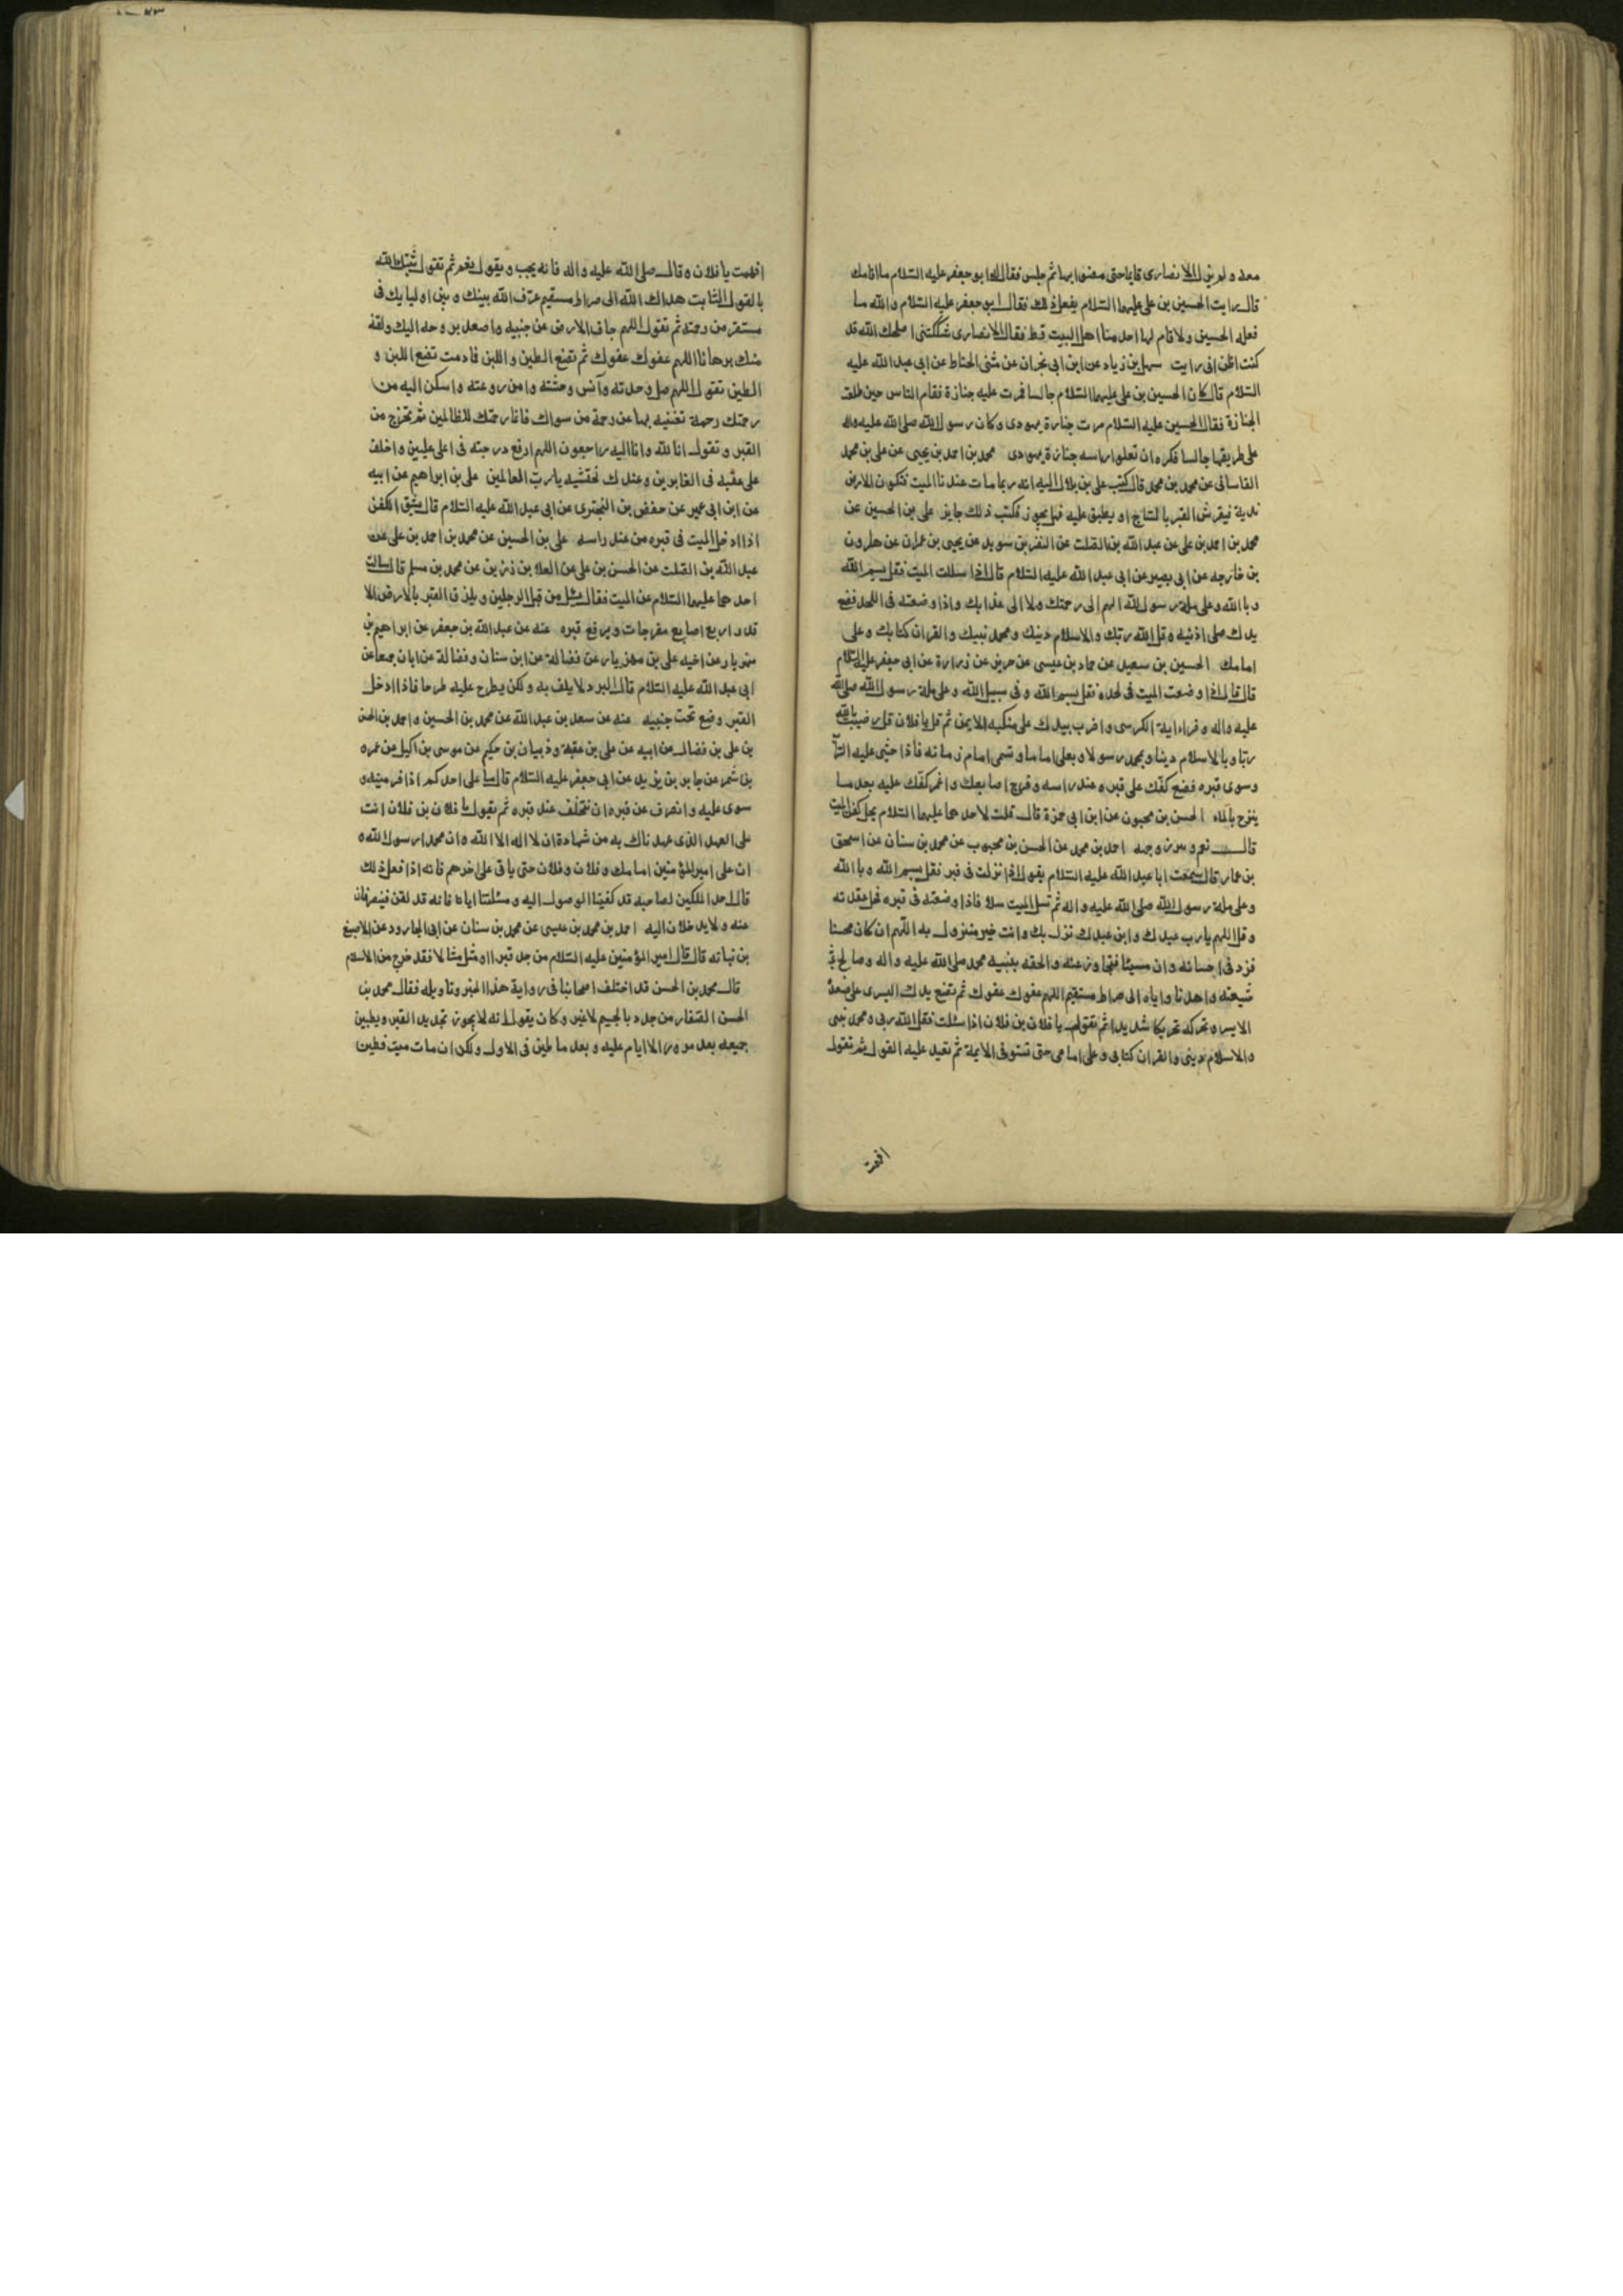 معه ولم يزل الانصارى قايما حتى مضوا بها ثم جلس فقال له ابو جعفر عليه السلام ما اقامك
قال رايت الحسين بن على عليهما السلام يفعل ذلك فقال ابو جعفر عليه السلام والله ما
فعله الحسين ولا قام لها احد منا اهل البيت قط فقال الانصارى شككتنى اصلحك الله قد
كنت اظن انى رايت سهل بن زياد عن ابن ابى نجران عن مثنى الحناط عن ابى عبد الله عليه
السلام قال كان الحسين بن على عليهما السلام جالسا فمرت عليه جنازة فقام الناس حين طلعت
الجنازة فقال الحسين عليه السلام مرت جنازة يهودى وكان رسول الله صلى الله عليه واله
على طريقها جالسا فكره ان تعلو راسه جنازة يهودى محمد بن احمد بن يحيى عن على بن محمد
القاسانى عن محمد بن محمد قال كتب على بن بلال اليه انه ربما مات عندنا الميت فتكون الارض
ندية فيفرش القبر بالساج او يطبق عليه فهل يجوز فكتب ذلك جايز على بن الحسين عن
محمد بن احمد بن على عن عبد الله بن الصلت عن النضر بن سويد عن يحيى بن عمران عن هارون
بن خارجه عن ابى بصير عن ابى عبد الله عليه السلام قال اذا سللت الميت فقل بسم الله
وبالله وعلى ملة رسول الله اللهم الى رحمتك ولا الى عذابك واذا وضعته فى اللحد فضع
يدك على اذنيه وقل الله ربك والاسلام دينك ومحمد نبيك والقران كتابك وعلى
امامك الحسين بن سعيد عن حماد بن عيسى عن حريز عن زرارة عن ابى جعفر عليه السلام
قال قال اذا وضعت الميت فى لحده فقل بسم الله وفى سبيل الله وعلى ملة رسول الله صلى الله
عليه واله وقراء اية الكرسى واضرب بيدك على منكبه الايمن ثم قل يا فلان قل رضيت بالله
ربا وبالاسلام دينا وبمحمد رسولا وبعلى اماما وتسمى امام زمانه فاذا حثى عليه الترا
وسوى قبره فضع كفك على قبره عند راسه وفرج اصابعك واغمز كفك عليه بعد ما
ينضح بالماء الحسن بن محبوب عن ابن ابى حمزة قال قلت لاحدهما عليهما السلام يحل كفن الميت
قال نعم ويبرز وجهه احمد بن محمد عن الحسن بن محبوب عن محمد بن سنان عن اسحق
بن عمار قال سمعت ابا عبد الله عليه السلام يقول اذا نزلت فى قبر فقل بسم الله وبالله
وعلى ملة رسول الله صلى الله عليه واله ثم تسل الميت سلا فاذا وضعته فى قبره فحل عقدته
وقل اللهم يا رب عبدك وابن عبدك نزل بك وانت خير منزول به اللهم ان كان محسنا
فزد فى احسانه وان مسيئا فتجاوز عنه والحقه بنبيه محمد صلى الله عليه واله وصالح
شيعته واهدنا واياه الى صراط مستقيم اللهم عفوك عفوك ثم تضع يدك اليسرى على عضده
الايسر وتحركه تحريكا شديدا ثم تقول يا فلان بن فلان اذا سئلت فقل الله ربى ومحمد نبيى
والاسلام دينى والقران كتابى وعلى امامى حتى تستوفى الايمة ثم تعيد عليه القول ثم تقول
افهمت
افهمت يا فلان وقال صلى الله عليه واله فانه يجب ويقول نعم ثم تقول ثبتك الله
بالقول الثابت هداك الله الى صراط مستقيم عرف الله بينك وبين اوليايك فى
مستقر من رحمته ثم تقول اللهم جاف الارض عن جنبيه واصعد بروحه اليك ولقه
منك برهانا اللهم عفوك عفوك ثم تضع الطين واللبن فادمت تضع اللبن و
الطين تقول اللهم صل وحدته وآنس وحشته وامن روعته واسكن اليه من
رحمتك رحمة تغنيه بها عن رحمة من سواك فانما رحمتك للظالمين ثم تخرج من
القبر وتقول انا لله وانا اليه راجعون اللهم ارفع درجته فى اعلى عليين واخلف
على عقبه فى الغابرين وعندك نحتسبه يا رب العالمين على بن ابراهيم عن ابيه
عن ابن ابى عمير عن حفص بن البخترى عن ابى عبد الله عليه السلام قال يشق الكفن
اذا ادخل الميت فى قبره من عند راسه على بن الحسين عن محمد بن احمد بن على عن
عبد الله بن الصلت عن الحسن بن على عن العلا بن رزين عن محمد بن مسلم قال سالت
احدهما عليهما السلام عن الميت فقال يسل من قبل الرجلين ويلزق القبر بالارض الا
قدر اربع اصابع مفرجات ويرفع قبره عنه عن عبد الله بن جعفر عن ابراهيم بن
مهزيار عن اخيه على بن مهزيار عن فضالة عن ابن سنان وفضالة عن ابان جميعا عن
ابى عبد الله عليه السلام قال البرد لا يلف به ولكن يطرح عليه طرحا فاذا ادخل
القبر وضع تحت جنبيه عنه عن سعد بن عبد الله عن محمد بن الحسين واحمد بن الحسن
بن على بن فضال عن ابيه عن على بن عقبة وذبيان بن حكيم عن موسى بن اكيل عن عمرو
بن شمر عن جابر بن يزيد عن ابى جعفر عليه السلام قال ما على احدكم اذا فر ميته و
سوى عليه وانصرف عن قبره ان يتخلف عند قبره ثم يقول يا فلان بن فلان انت
على العهد الذى عهدناك به من شهادة ان لا اله الا الله وان محمدا رسول الله و
ان على امير المؤمنين امامك وفلان وفلان حتى ياتى على اخرهم فانه اذا فعل ذلك
قال احد الملكين لصاحبه قد كفينا الوصول اليه ومسئلتنا اياه فانه قد لقن فينصرفان
عنه ولا يدخلان اليه احمد بن محمد بن عيسى عن محمد بن سنان عن ابى الجارود عن الاصبغ
بن نباته قال قال امير المؤمنين عليه السلام من جدد قبرا او مثل مثالا فقد خرج من الاسلام
قال محمد بن الحسن قد اختلف اصحابنا فى رواية هذا الخبر وتاويله فقال محمد بن
الحسن الصفار من جدد بالجيم لا غير وكان يقول انه لا يجوز تجديد القبر ويطيين
جميعه بعد مرور الايام عليه وبعد ما طين فى الاول ولكن ان مات ميت فطين